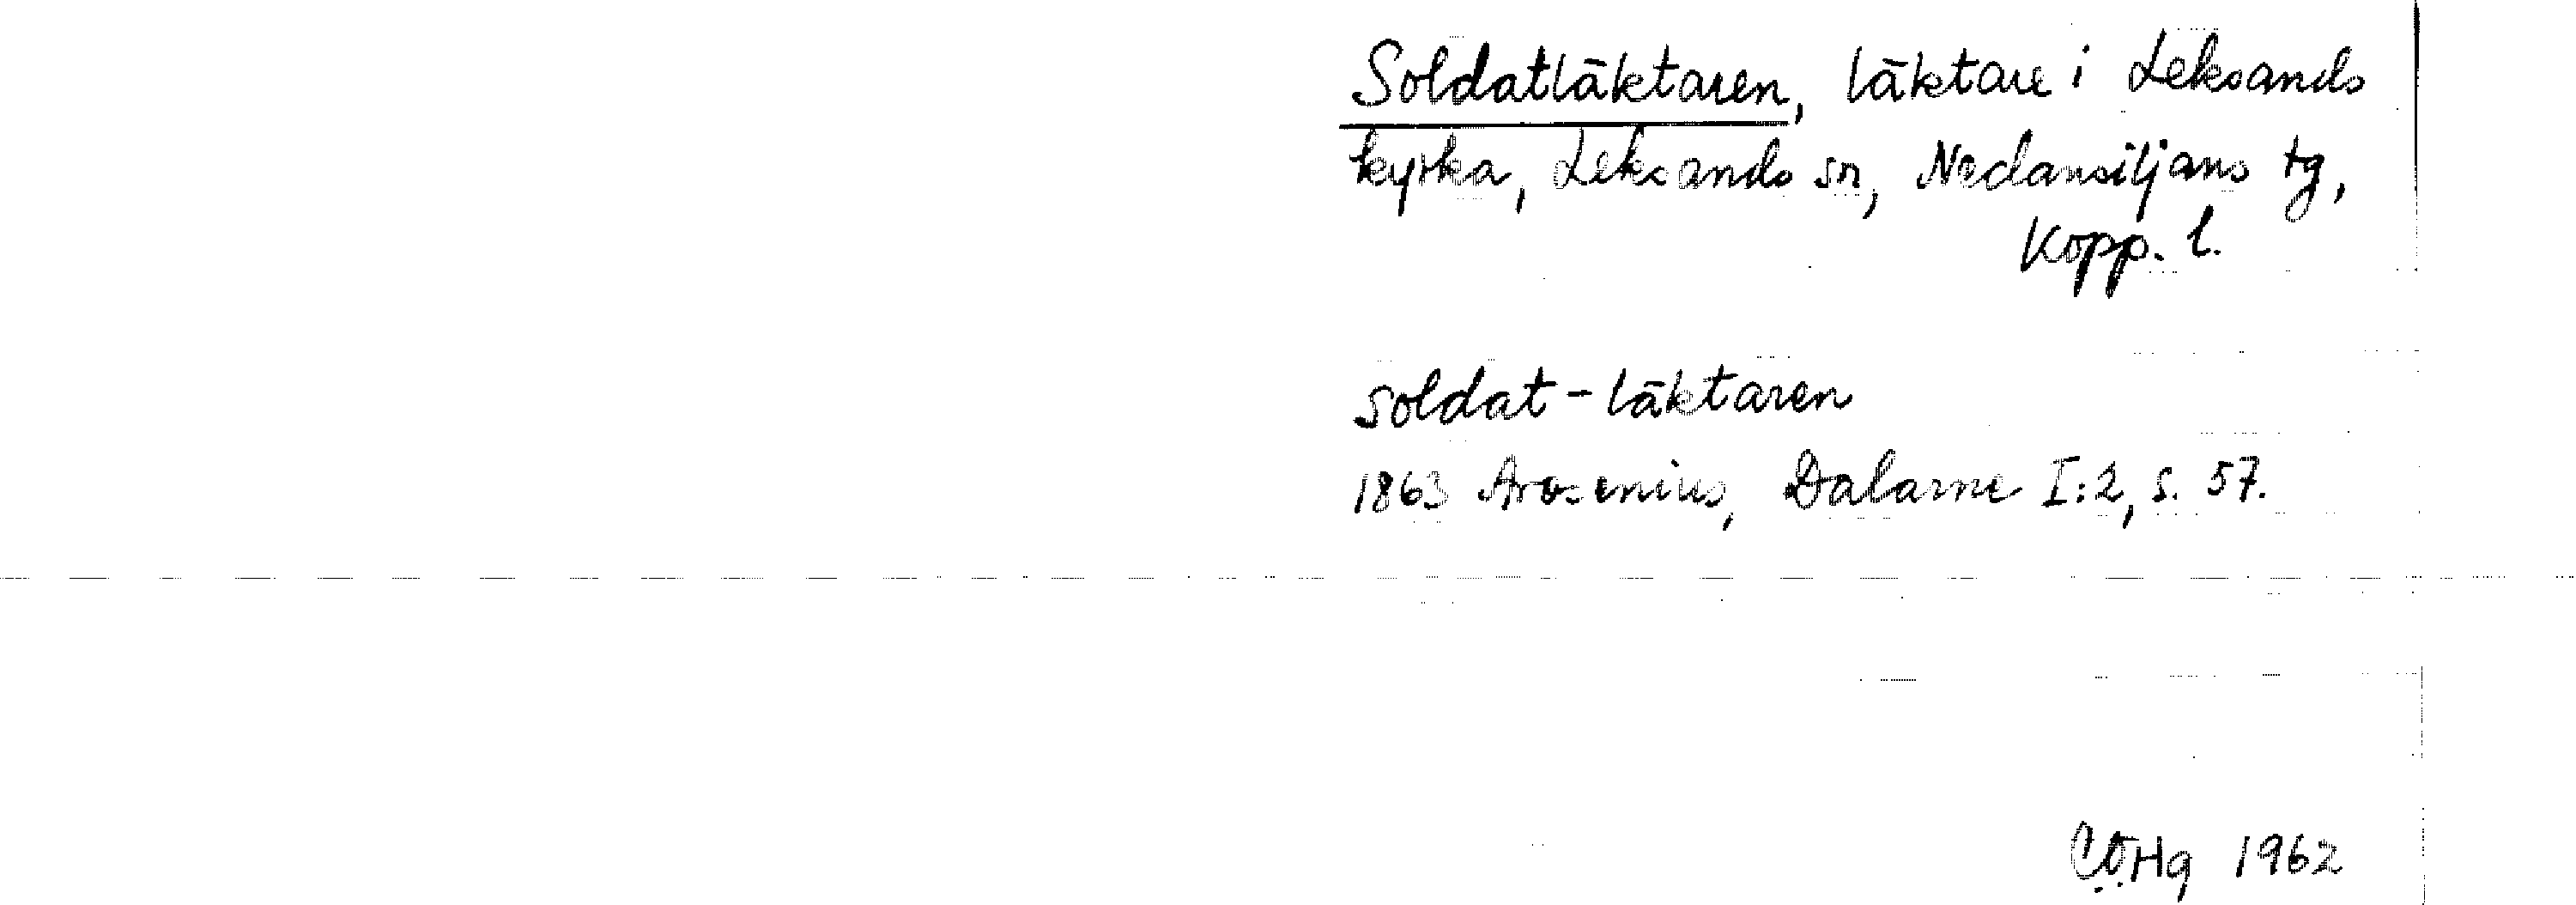 Soldatläktaren, läktare i Leksands
kyrka, Leksands sn, Nedansiljans tg,
Kopp. l.
soldat-läktaren
1863 Arosenius, Dalarne I:2, s. 57.
1962